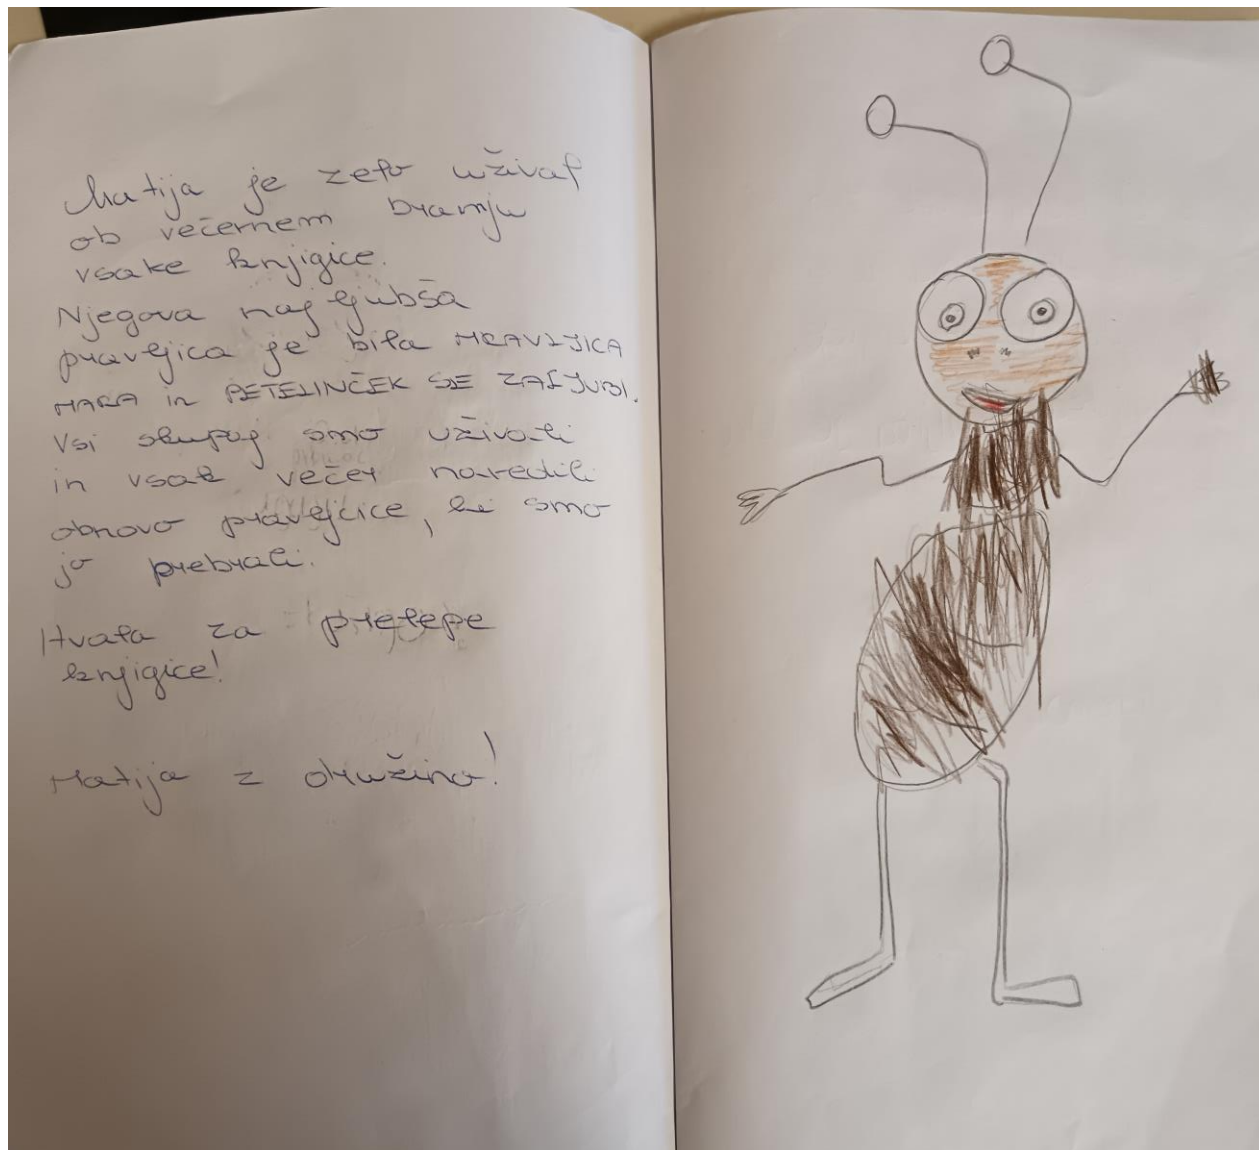 Matija je zelo užival
ob večernem branju
vsake knjigice.
Njegova najljubša
pravljica je bila MRAVLJICA
MARA in PETELINČEK SE ZALJUBI.
Vsi skupaj smo uživali
in vsak večer naredili
obnovo pravljcice, ki smo
jo prebrali.
Hvala za prelepe
knjigice!
Matija z družino!